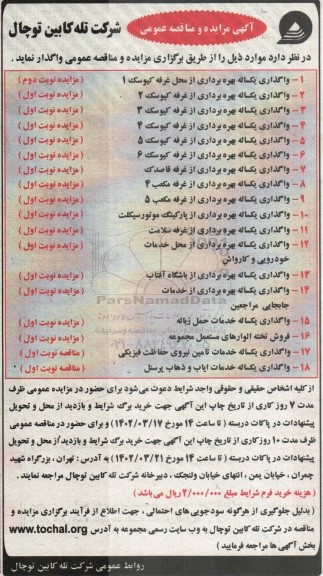 آگهی مزایده و مناقصه عمومی
شرکت تله کابین توچال
در نظر دارد موارد ذیل را از طریق برگزاری مزایده و مناقصه عمومی واگذار نماید.
۱- واگذاری یکساله بهره برداری از محل غرفه کیوسک ۱ (مزایده نوبت دوم)
۲- واگذاری یکساله بهره برداری از غرفه کیوسک ۲ (مزایده نوبت اول)
۳- واگذاری یکساله بهره برداری از غرفه کیوسک ۳ (مزایده نوبت اول)
۴- واگذاری یکساله بهره برداری از غرفه کیوسک ۴ (مزایده نوبت اول)
۵- واگذاری یکساله بهره برداری از غرفه کیوسک ۵ (مزایده نوبت اول)
۶- واگذاری یکساله بهره برداری از غرفه کیوسک ۶ (مزایده نوبت اول)
۷- واگذاری یکساله بهره برداری از غرفه قاصدک (مزایده نوبت اول)
۸- واگذاری یکساله بهره برداری از غرفه مکعب ۴ (مزایده نوبت اول)
۹- واگذاری یکساله بهره برداری از غرفه مکعب ۵ (مزایده نوبت اول)
۱۰- واگذاری یکساله بهره برداری از پارکینگ موتورسیکلت (مزایده نوبت اول)
۱۱- واگذاری یکساله بهره برداری از غرفه سلامت (مزایده نوبت اول)
۱۲- واگذاری یکساله بهره برداری از محل خدمات (مزایده نوبت اول)
خودرویی و کارواش
۱۳- واگذاری یکساله بهره برداری از باشگاه آفتاب (مزایده نوبت اول)
۱۴- واگذاری یکساله بهره برداری از خدمات (مزایده نوبت اول)
جابجایی مراجعین
ParsNamadData
۱۵- واگذاری یکساله خدمات حمل زباله (مزایده نوبت اول)
۱۶- فروش تخته الوارهای مستعمل مجموعه (مزایده نوبت اول)
۱۷- واگذاری یکساله خدمات تامین نیروی حفاظت فیزیکی (مناقصه نوبت اول)
۱۸- واگذاری یکساله خدمات ایاب و ذهاب پرسنل (مناقصه نوبت اول)
از کلیه اشخاص حقیقی و حقوقی واجد شرایط دعوت می شود برای حضور در مزایده عمومی ظرف
مدت ۷ روز کاری از تاریخ چاپ این آگهی جهت خرید برگ شرایط و بازدید از محل و تحویل
پیشنهادات در پاکات دربسته (تا ساعت ۱۴ مورخ ۱۴۰۲/۰۳/۱۷) و برای حضور در مناقصه عمومی
ظرف مدت ۱۰ روز کاری از تاریخ چاپ این آگهی جهت خرید برگ شرایط و بازدید از محل و تحویل
پیشنهادات در پاکات دربسته (تا ساعت ۱۴ مورخ ۱۴۰۲/۰۳/۲۱) به آدرس : تهران ، بزرگراه شهید
چمران ، خیابان یمن ، انتهای خیابان ولنجک ، دبیرخانه شرکت تله کابین توچال مراجعه نمایند.
(هزینه خرید فرم شرایط مبلغ ۲/۰۰۰/۰۰۰ ریال می باشد)
(بدلیل جلوگیری از هرگونه سودجویی های احتمالی ، جهت اطلاع از فرآیند برگزاری مزایده و
مناقصه در شرکت تله کابین توچال به وب سایت رسمی مجموعه به آدرس www.tochal.org
بخش آگهی ها مراجعه فرمایید)
روابط عمومی شرکت تله کابین توچال